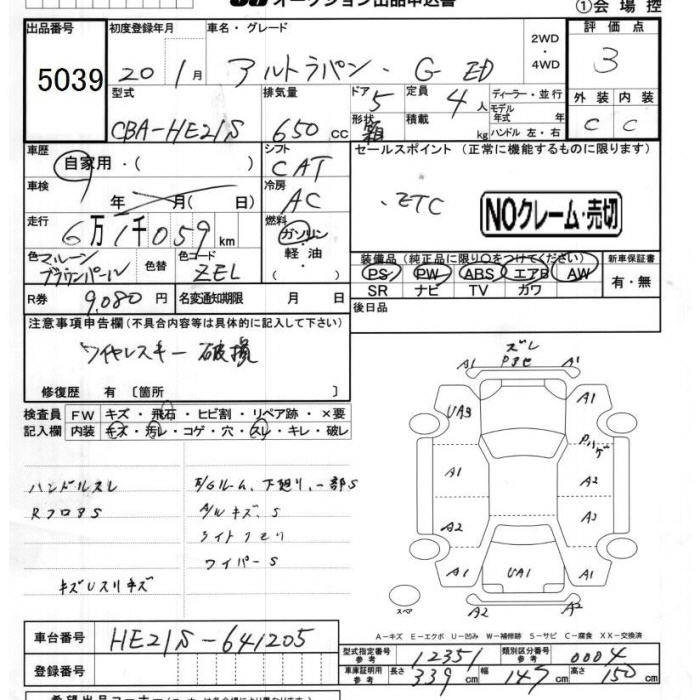 オークション出品申込書
①会場控
出品番号 初度登録年月 車名・グレード 評価点
5039 20 1月 アルトラパン・G ED 2WD・4WD 3
型式 排気量 ドア 5 定員 4人 ディーラー・並行 外装 内装
CBA-HE21S 650cc 形状 箱 積載 kg モデル年式 年 ハンドル 左・右 C C
車歴 自家用・( ) シフト CAT セールスポイント (正常に機能するものに限ります)
車検 年 月( 日) 冷房 AC ・ETC NOクレーム・売切
走行 6万1千059km 燃料 ガソリン・軽油・( )
色 マルーンブラウンパール 色替 色コード ZEL 装備品 (純正品に限り○をつけてください) 新車保証書
PS PW ABS エアB AW 有・無
SR ナビ TV カワ
R券 9,080円 名変通知期限 月 日 後日品
注意事項申告欄 (不具合内容等は具体的に記入して下さい)
ワイヤレスキー 破損
修復歴 有 〔箇所 〕
検査員記入欄 FW キズ・飛石・ヒビ割・リペア跡・×要
内装 キズ・汚レ・コゲ・穴・スレ・キレ・破レ
ハンドルスレ E/Gルーム、下廻り、一部S
RフロアS A/Wキズ、S
ライトクモリ
ワイパーS
キズUスリキズ
ズレ
A1 A1
UA3 A1
A1 A2
A2 A3
A1 UA1 A1
スペア A2 A2
A-キズ E-エクボ U-凹み W-補修跡 S-サビ C-腐食 XX-交換済
車台番号 HE21S-641205
登録番号
型式指定番号参考 12351 類別区分番号参考 0004
車庫証明用参考 長さ 339cm 幅 147cm 高さ 150cm